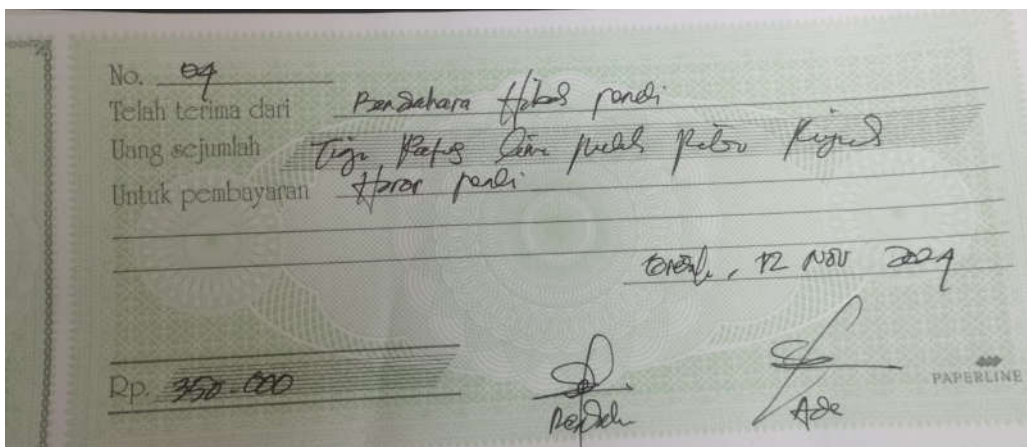 No. 04
Telah terima dari Bendahara
Uang sejumlah Tiga Ratus Lima puluh Ribu Rupiah
Untuk pembayaran Honor
, 12 Nov 2024
Rp. 350.000
PAPERLINE
Ade